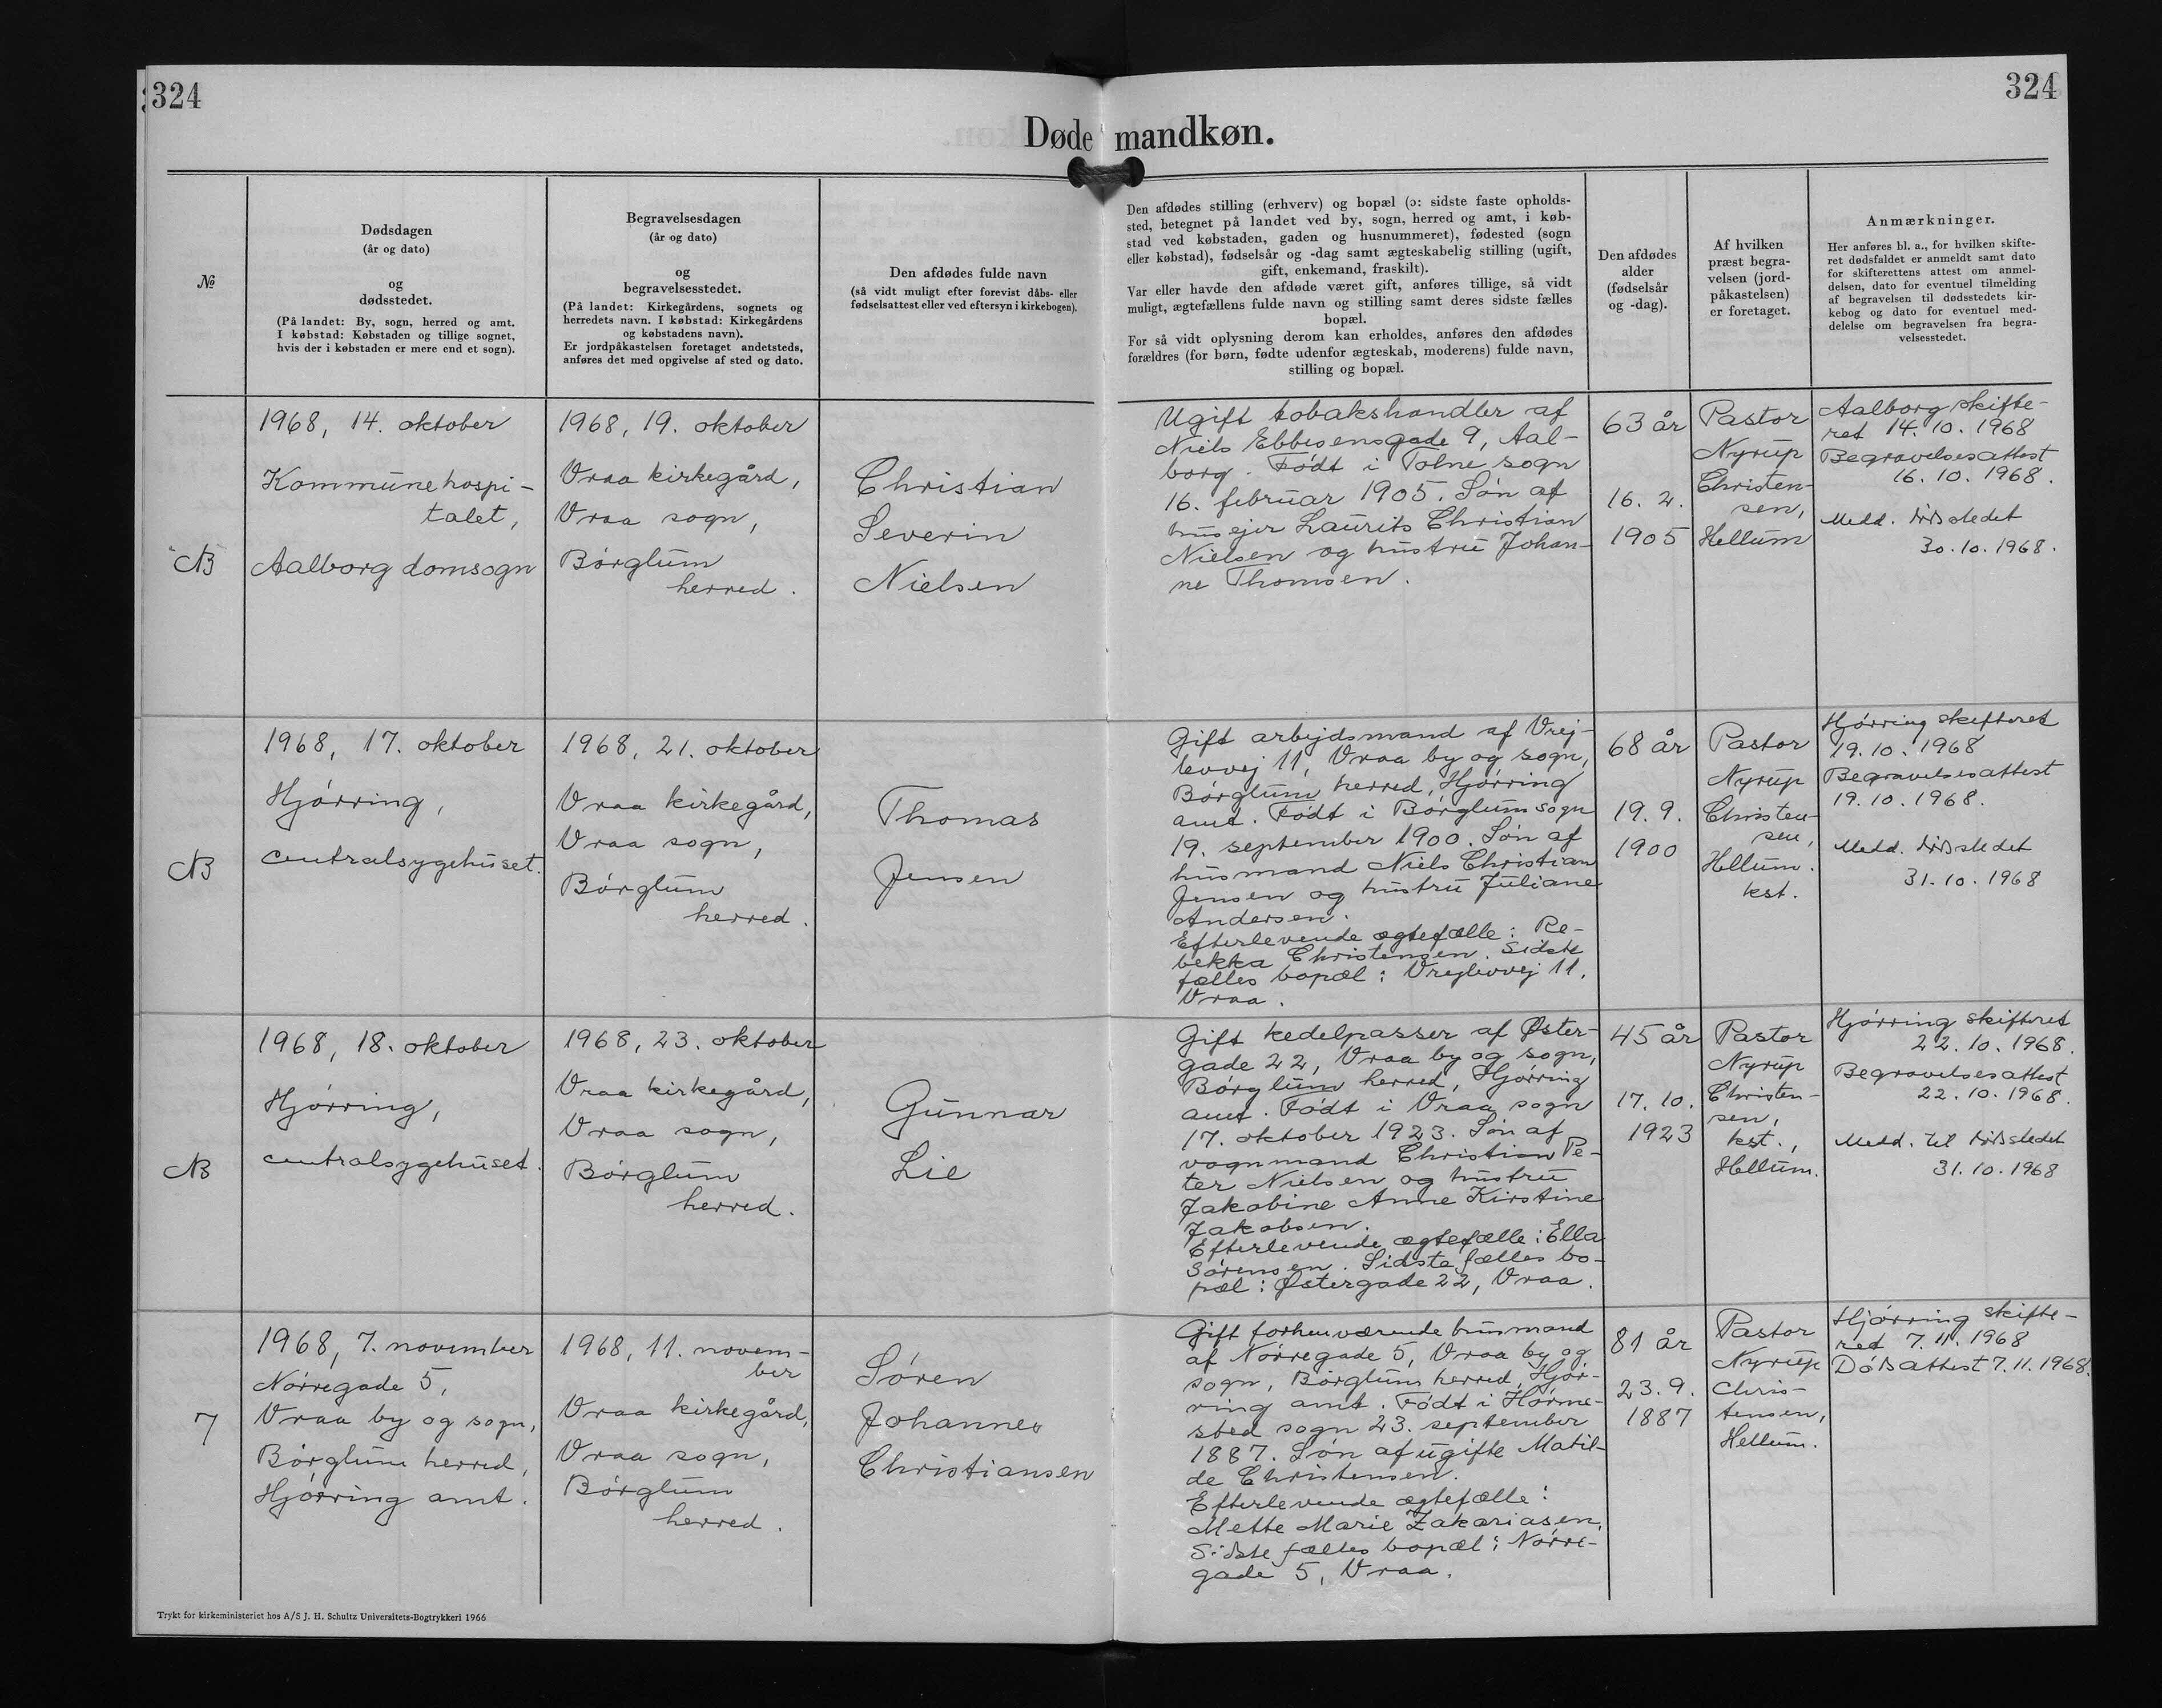 324
324
Døde mandkøn.
№
Dødsdagen
(år og dato)
og
dødsstedet.
(På landet: By, sogn, herred og amt.
I købstad: Købstaden og tillige sognet,
hvis der i købstaden er mere end et sogn).
Begravelsesdagen
(år og dato)
og
begravelsesstedet.
(På landet: Kirkegårdens, sognets og
herredets navn. I købstad: Kirkegårdens
og købstadens navn).
Er jordpåkastelsen foretaget andetsteds,
anføres det med opgivelse af sted og dato.
Den afdødes fulde navn
(så vidt muligt efter forevist dåbs- eller
fødselsattest eller ved eftersyn i kirkebogen).
Den afdødes stilling (erhverv) og bopæl (ɔ: sidste faste opholds-
sted, betegnet på landet ved by, sogn, herred og amt, i køb-
stad ved købstaden, gaden og husnummeret), fødested (sogn
eller købstad), fødselsår og -dag samt ægteskabelig stilling (ugift,
gift, enkemand, fraskilt).
Var eller havde den afdøde været gift, anføres tillige, så vidt
muligt, ægtefællens fulde navn og stilling samt deres sidste fælles
bopæl.
For så vidt oplysning derom kan erholdes, anføres den afdødes
forældres (for børn, fødte udenfor ægteskab, moderens) fulde navn,
stilling og bopæl.
Den afdødes
alder
(fødselsår
og -dag).
Af hvilken
præst begra-
velsen (jord-
påkastelsen)
er foretaget.
Anmærkninger.
Her anføres bl. a., for hvilken skifte-
ret dødsfaldet er anmeldt samt dato
for skifterettens attest om anmel-
delsen, dato for eventuel tilmelding
af begravelsen til dødsstedets kir-
kebog og dato for eventuel med-
delelse om begravelsen fra begra-
velsesstedet.
NB
1968, 14. oktober
Kommunehospi-
talet,
Aalborg domsogn
1968, 19. oktober
Vraa kirkegård,
Vraa sogn,
Børglum
herred.
Christian
Severin
Nielsen
Ugift tobakshandler af
Niels Ebbesensgade 9, Aal-
borg. Født i Tolne sogn
16. februar 1905. Søn af
husejer Laurits Christian
Nielsen og hustru Johan-
ne Thomsen.
63 år
16. 2.
1905
Pastor
Nyrup
Christen-
sen,
Hellum
Aalborg skifte-
ret 14. 10. 1968
Begravelsesattest
16. 10. 1968.
Medd. dødsstedet
30. 10. 1968.
NB
1968, 17. oktober
Hjørring,
centralsygehuset.
1968, 21. oktober
Vraa kirkegård,
Vraa sogn,
Børglum
herred.
Thomas
Jensen
Gift arbejdsmand af Vrej-
levvej 11, Vraa by og sogn,
Børglum herred, Hjørring
amt. Født i Børglum sogn
19. september 1900. Søn af
husmand Niels Christian
Jensen og hustru Juliane
Andersen.
Efterlevende ægtefælle: Re-
bekka Christensen. Sidste
fælles bopæl: Vrejlevvej 11,
Vraa.
68 år
19. 9.
1900
Pastor
Nyrup
Christen-
sen,
Hellum.
kst.
Hjørring skifteret
19. 10. 1968
Begravelsesattest
19. 10. 1968.
Medd. dødsstedet
31. 10. 1968
NB
1968, 18. oktober
Hjørring,
centralsygehuset.
1968, 23. oktober
Vraa kirkegård,
Vraa sogn,
Børglum
herred.
Gunnar
Lie
Gift kedelpasser af Øster-
gade 22, Vraa by og sogn,
Børglum herred, Hjørring
amt. Født i Vraa sogn
17. oktober 1923. Søn af
vognmand Christian Pe-
ter Nielsen og hustru
Jakobine Anne Kirstine
Jakobsen.
Efterlevende ægtefælle: Ella
Sørensen. Sidste fælles bo-
pæl: Østergade 22, Vraa.
45 år
17. 10.
1923
Pastor
Nyrup
Christen-
sen,
kst.,
Hellum.
Hjørring skifteret
22. 10. 1968.
Begravelsesattest
22. 10. 1968.
Medd. til dødsstedet
31. 10. 1968
7
1968, 7. november
Nørregade 5,
Vraa by og sogn,
Børglum herred,
Hjørring amt.
1968, 11. novem-
ber
Vraa kirkegård,
Vraa sogn,
Børglum
herred.
Søren
Johannes
Christiansen
Gift forhenværende husmand
af Nørregade 5, Vraa by og
sogn, Børglum herred, Hjør-
ring amt. Født i Hørme-
sted sogn 23. september
1887. Søn af ugifte Matil-
de Christensen.
Efterlevende ægtefælle:
Mette Marie Zakariasen.
Sidste fælles bopæl: Nørre-
gade 5, Vraa.
81 år
23. 9.
1887
Pastor
Nyrup
Chris-
tensen,
Hellum.
Hjørring skifte-
ret 7. 11. 1968
Dødsattest 7. 11. 1968.
Trykt for kirkeministeriet hos A/S J. H. Schultz Universitets-Bogtrykkeri 1966